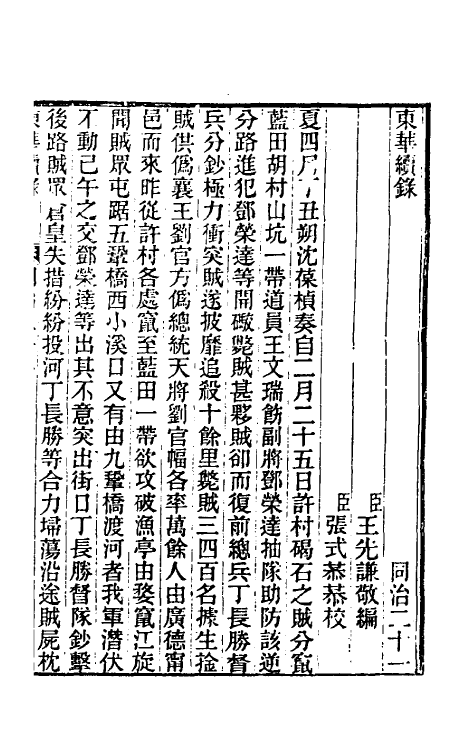 東華續錄 同治二十一
臣王先謙敬編
臣張式恭恭校
夏四月丁丑朔沈葆楨奏自二月二十五日許村碣石之賊分竄
藍田胡村山坑一帶道員王文瑞飭副將鄧榮達抽隊助防該逆
分路進犯鄧榮達等開礮斃賊甚夥賊卻而復前總兵丁長勝督
兵分鈔極力衝突賊遂披靡追殺十餘里斃賊三四百名據生捦
賊供僞襄王劉官方僞總統天將劉官幅各率萬餘人由廣德甯
邑而來昨從許村各處竄至藍田一帶欲攻破漁亭由婺竄江旋
聞賊眾屯踞五鞏橋西小溪口又有由九鞏橋渡河者我軍潛伏
不動己午之交鄧榮達等出其不意突出街口丁長勝督隊鈔擊
後路賊眾倉皇失措紛紛投河丁長勝等合力埽蕩沿途賊屍枕
東華續錄